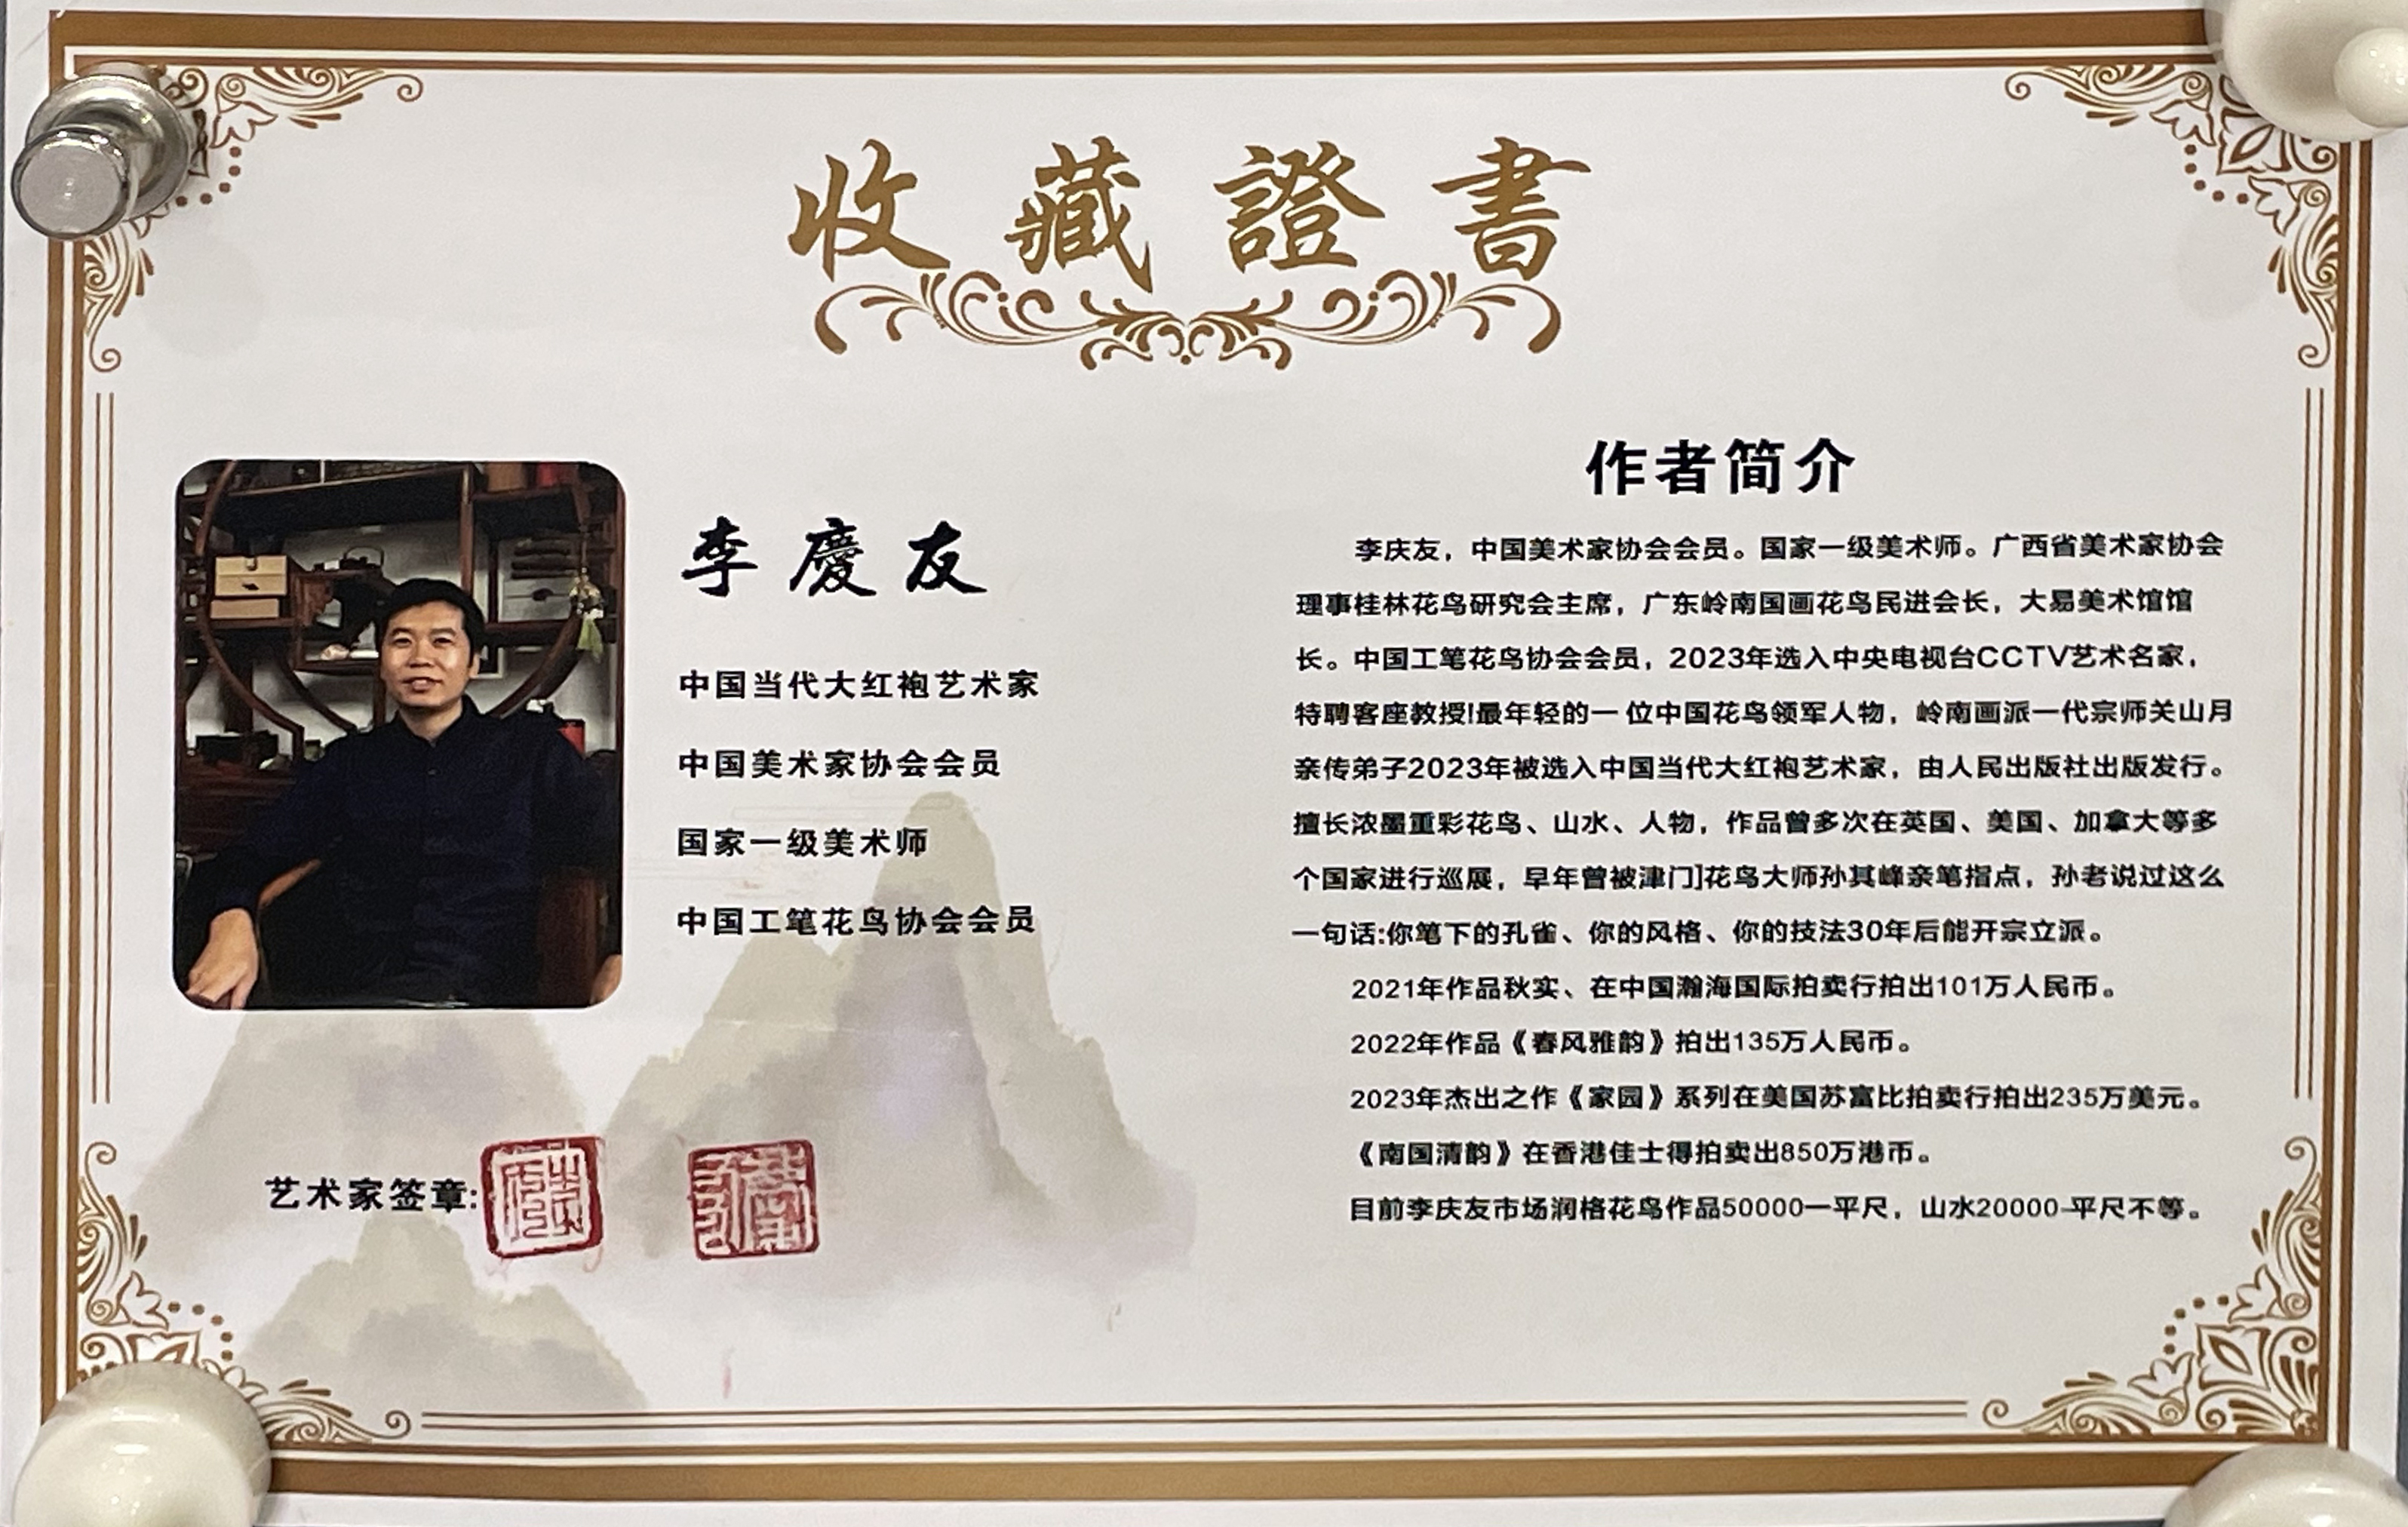 收藏證書
李慶友
中国当代大红袍艺术家
中国美术家协会会员
国家一级美术师
中国工笔花鸟协会会员
艺术家签章:
作者简介
李庆友，中国美术家协会会员。国家一级美术师。广西省美术家协会
理事桂林花鸟研究会主席，广东岭南国画花鸟民进会长，大易美术馆馆
长。中国工笔花鸟协会会员，2023年选入中央电视台CCTV艺术名家，
特聘客座教授!最年轻的一位中国花鸟领军人物，岭南画派一代宗师关山月
亲传弟子2023年被选入中国当代大红袍艺术家，由人民出版社出版发行。
擅长浓墨重彩花鸟、山水、人物，作品曾多次在英国、美国、加拿大等多
个国家进行巡展，早年曾被津门]花鸟大师孙其峰亲笔指点，孙老说过这么
一句话:你笔下的孔雀、你的风格、你的技法30年后能开宗立派。
2021年作品秋实、在中国瀚海国际拍卖行拍出101万人民币。
2022年作品《春风雅韵》拍出135万人民币。
2023年杰出之作《家园》系列在美国苏富比拍卖行拍出235万美元。
《南国清韵》在香港佳士得拍卖出850万港币。
目前李庆友市场润格花鸟作品50000一平尺，山水20000-平尺不等。